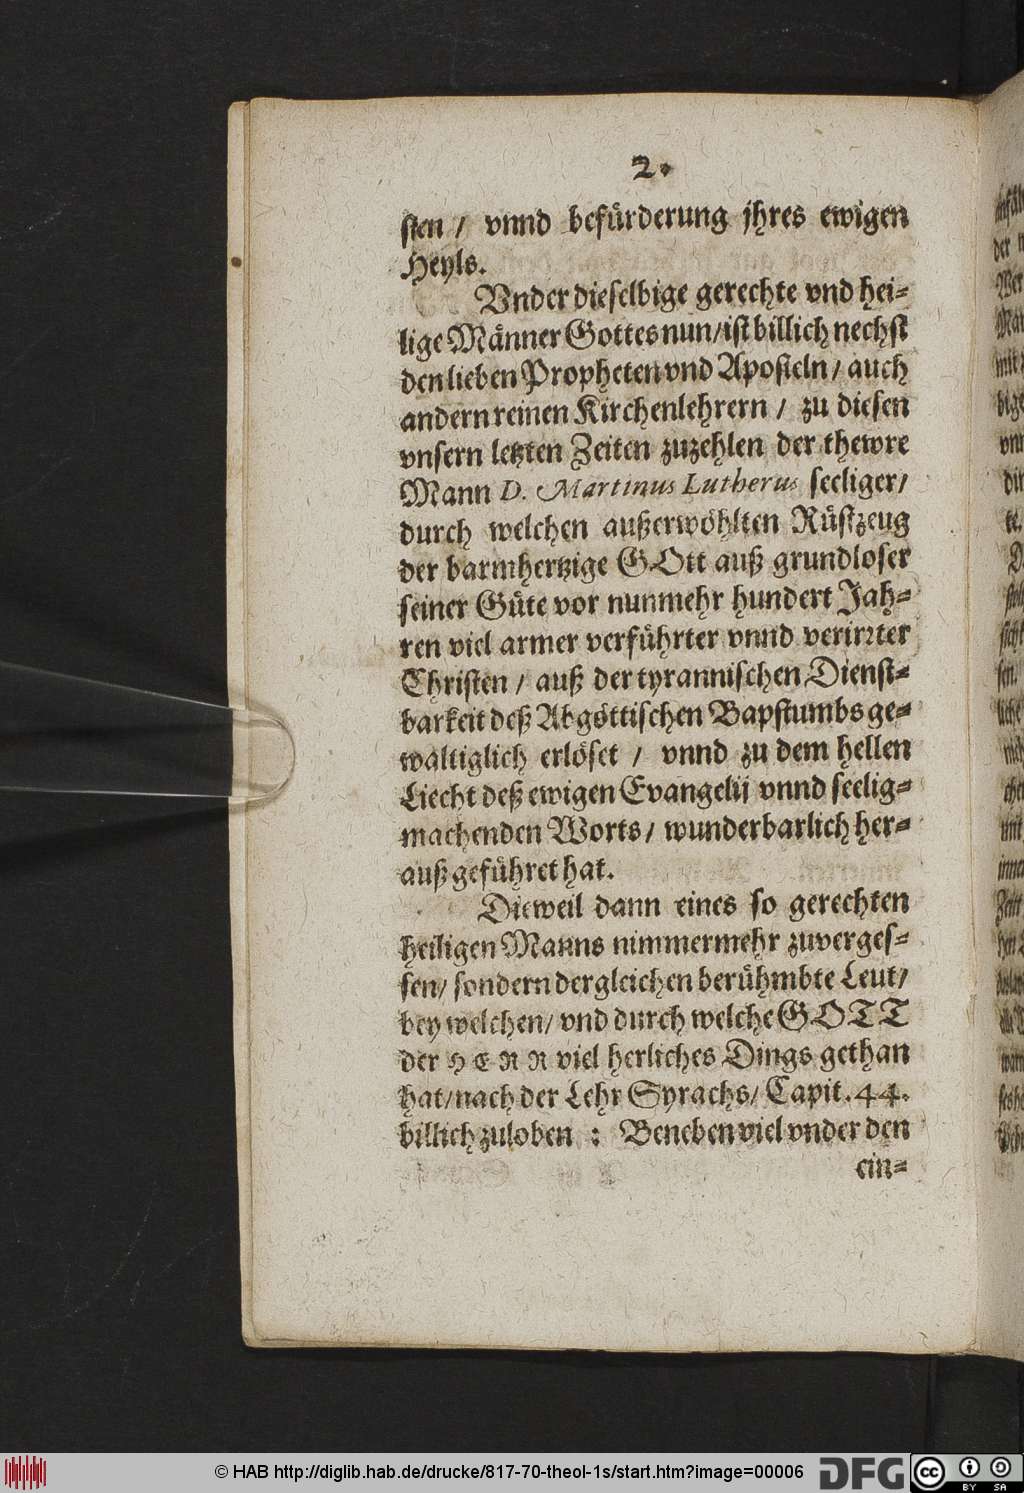 2.
sten / vnnd befürderung jhres ewigen
Heyls.
Vnder dieselbige gerechte vnd hei-
lige Männer Gottes nun/ ist billich nechst
den lieben Propheten vnd Aposteln / auch
andern reinen Kirchenlehrern / zu diesen
vnsern letzten Zeiten zuzehlen der thewre
Mann D. Martinus Lutherus seeliger/
durch welchen außerwöhlten Rüstzeug
der barmhertzige GOtt auß grundloser
seiner Güte vor nunmehr hundert Jah-
ren viel armer verführter vnnd verirrter
Christen / auß der tyrannischen Dienst-
barkeit deß Abgöttischen Bapstumbs ge-
waltiglich erlöset / vnnd zu dem hellen
Liecht deß ewigen Evangelij vnnd seelig-
machenden Worts / wunderbarlich her-
auß geführet hat.
Dieweil dann eines so gerechten
heiligen Manns nimmermehr zuverges-
sen/ sondern dergleichen berühmbte Leut/
bey welchen/ vnd durch welche GOTT
der HERR viel herliches Dings gethan
hat/ nach der Lehr Syrachs/ Capit. 44.
billich zuloben : Beneben viel vnder den
ein-
© HAB http://diglib.hab.de/drucke/817-70-theol-1s/start.htm?image=00006
DFG
cc
BY SA